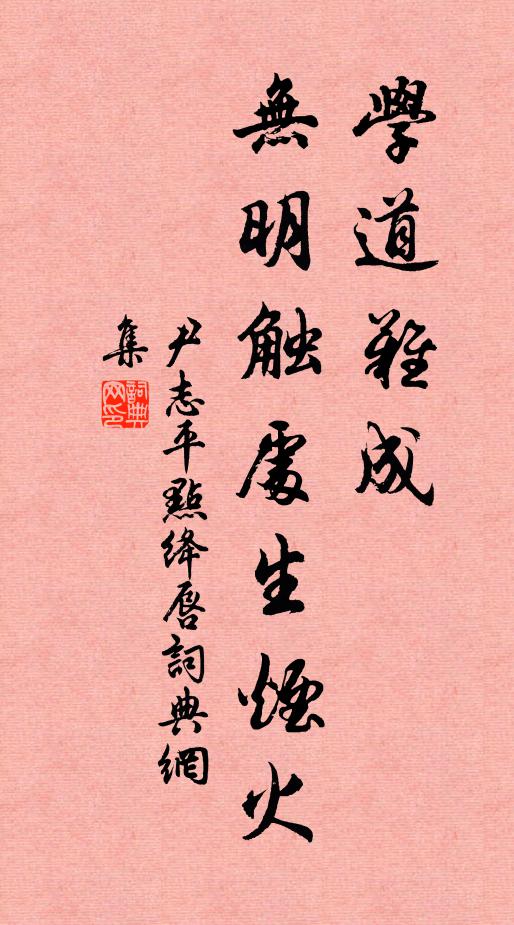 學道難成
無明触處生煙火
尹志平點絳唇詞典網
集
詞典網印